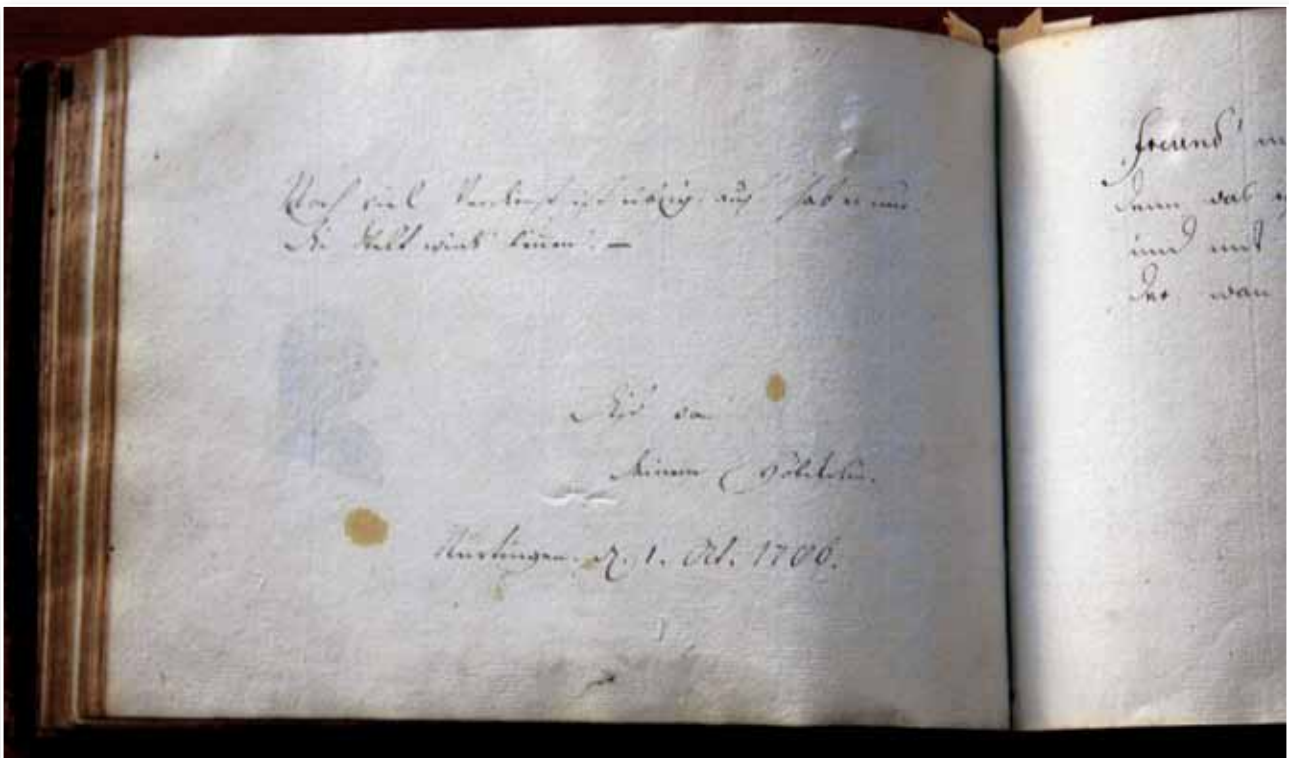 Noch viel Verdienst ist übrig. auf! hab es nur.
die Welt wirds kennen! —
Dis von
deinem Hölderlin.
Nürtingen. d. 1. Oct. 1786.
denn das
und mit